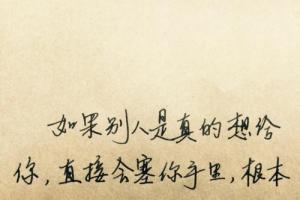 如果别人是真的想给
你,直接会塞你手里,根本